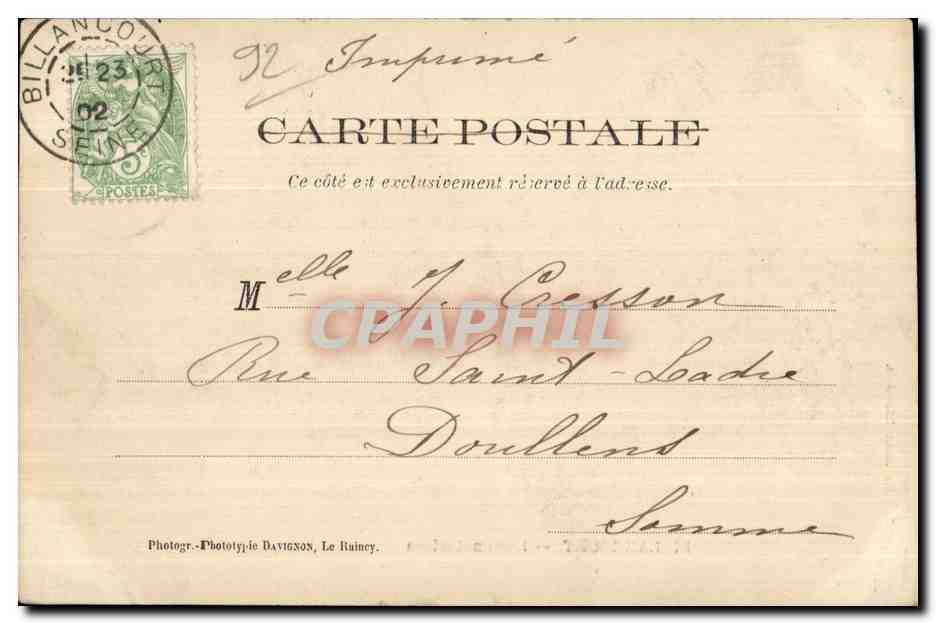 BILLANCOURT
23
02
SEINE
5c
POSTES
92 Imprimé
CARTE POSTALE
Ce côté est exclusivement réservé à l'adresse.
Melle J. Cresson
CPAPHIL
Rue Saint-Ladre
Doullens
Somme
Photogr.-Phototypie DAVIGNON, Le Raincy.